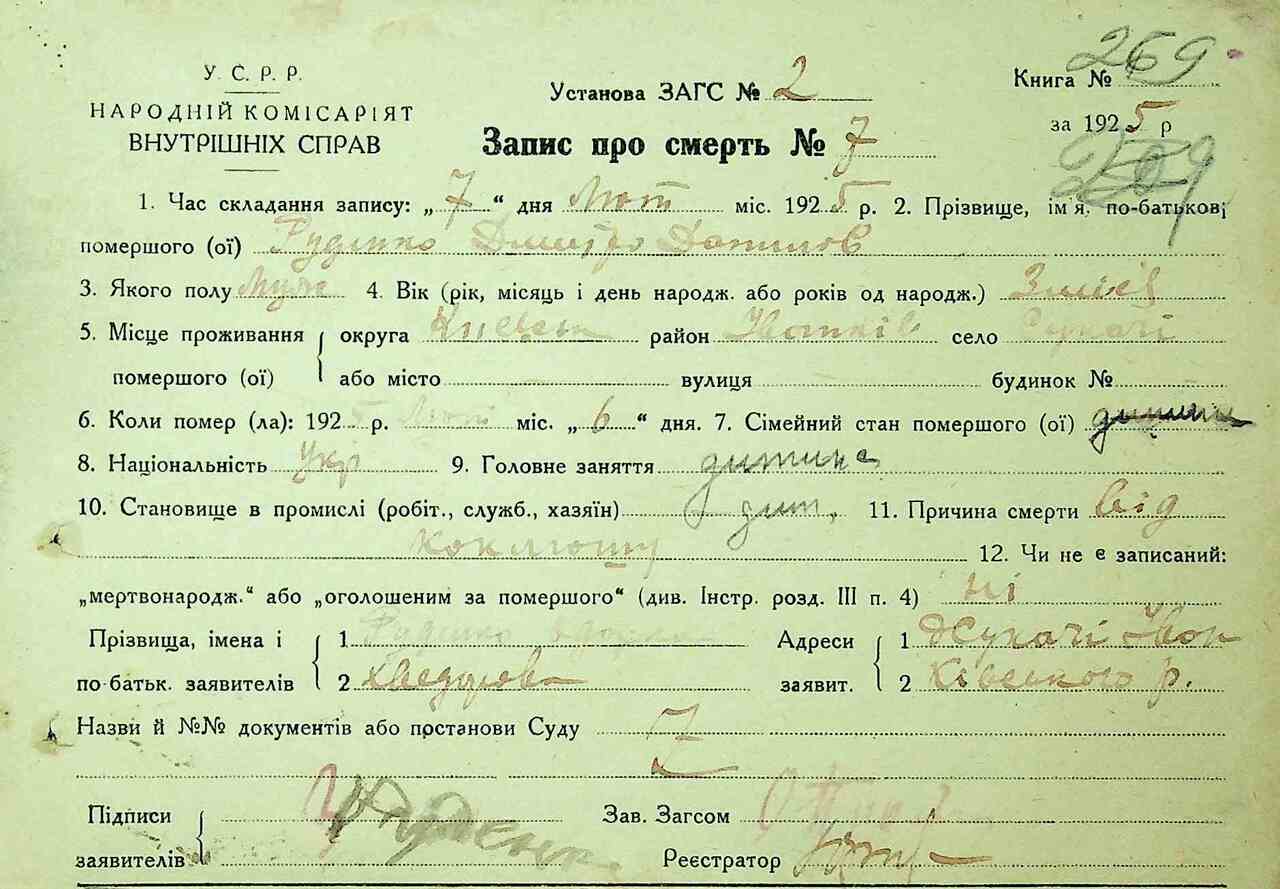 У. С. Р. Р.
НАРОДНІЙ КОМІСАРІЯТ
ВНУТРІШНІХ СПРАВ
Установа ЗАГС № 2
Запис про смерть № 7
Книга № 269
за 1925 р
269
1. Час складання запису: „7“ дня Лют міс. 1925 р. 2. Прізвище, ім'я, по-батькові
помершого (ої) Руденко Дмитро Данилов
3. Якого полу Муж 4. Вік (рік, місяць і день народж. або років од народж.) 3 міс
5. Місце проживання округа Київськ район Іванків село Сукачі
помершого (ої) або місто вулиця будинок №
6. Коли помер (ла): 1925 р. Лютий міс. „6“ дня. 7. Сімейний стан помершого (ої) дитина
8. Національність Укр 9. Головне заняття дитина
10. Становище в промислі (робіт., служб., хазяїн) дит, 11. Причина смерти від
коклюшу 12. Чи не є записаний:
„мертвонародж.“ або „оголошеним за помершого“ (див. Інстр. розд. III п. 4) ні
Прізвища, імена і 1 Руденко Адреси 1 Сукачі Іван
по-батьк. заявителів 2 Хведорова заявит. 2 Ківського р.
Назви й №№ документів або прстанови Суду 7
Підписи Зав. Загсом
заявителів Реєстратор